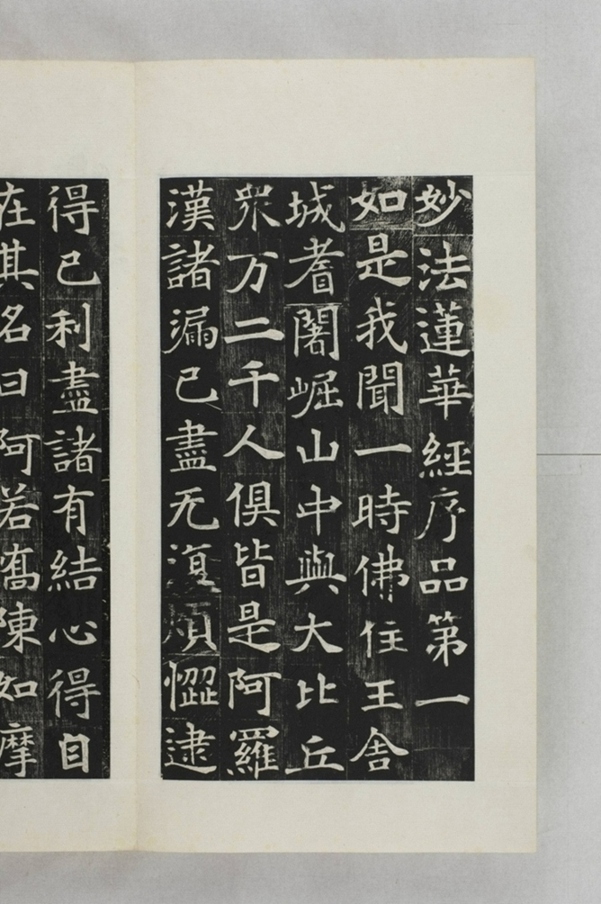 妙法蓮華經序品第一
如是我聞一時佛住王舍
城耆闍崛山中與大比丘
眾万二千人俱皆是阿羅
漢諸漏已盡无復煩惱逮
得己利盡諸有結心得自
在其名曰阿若憍陳如摩